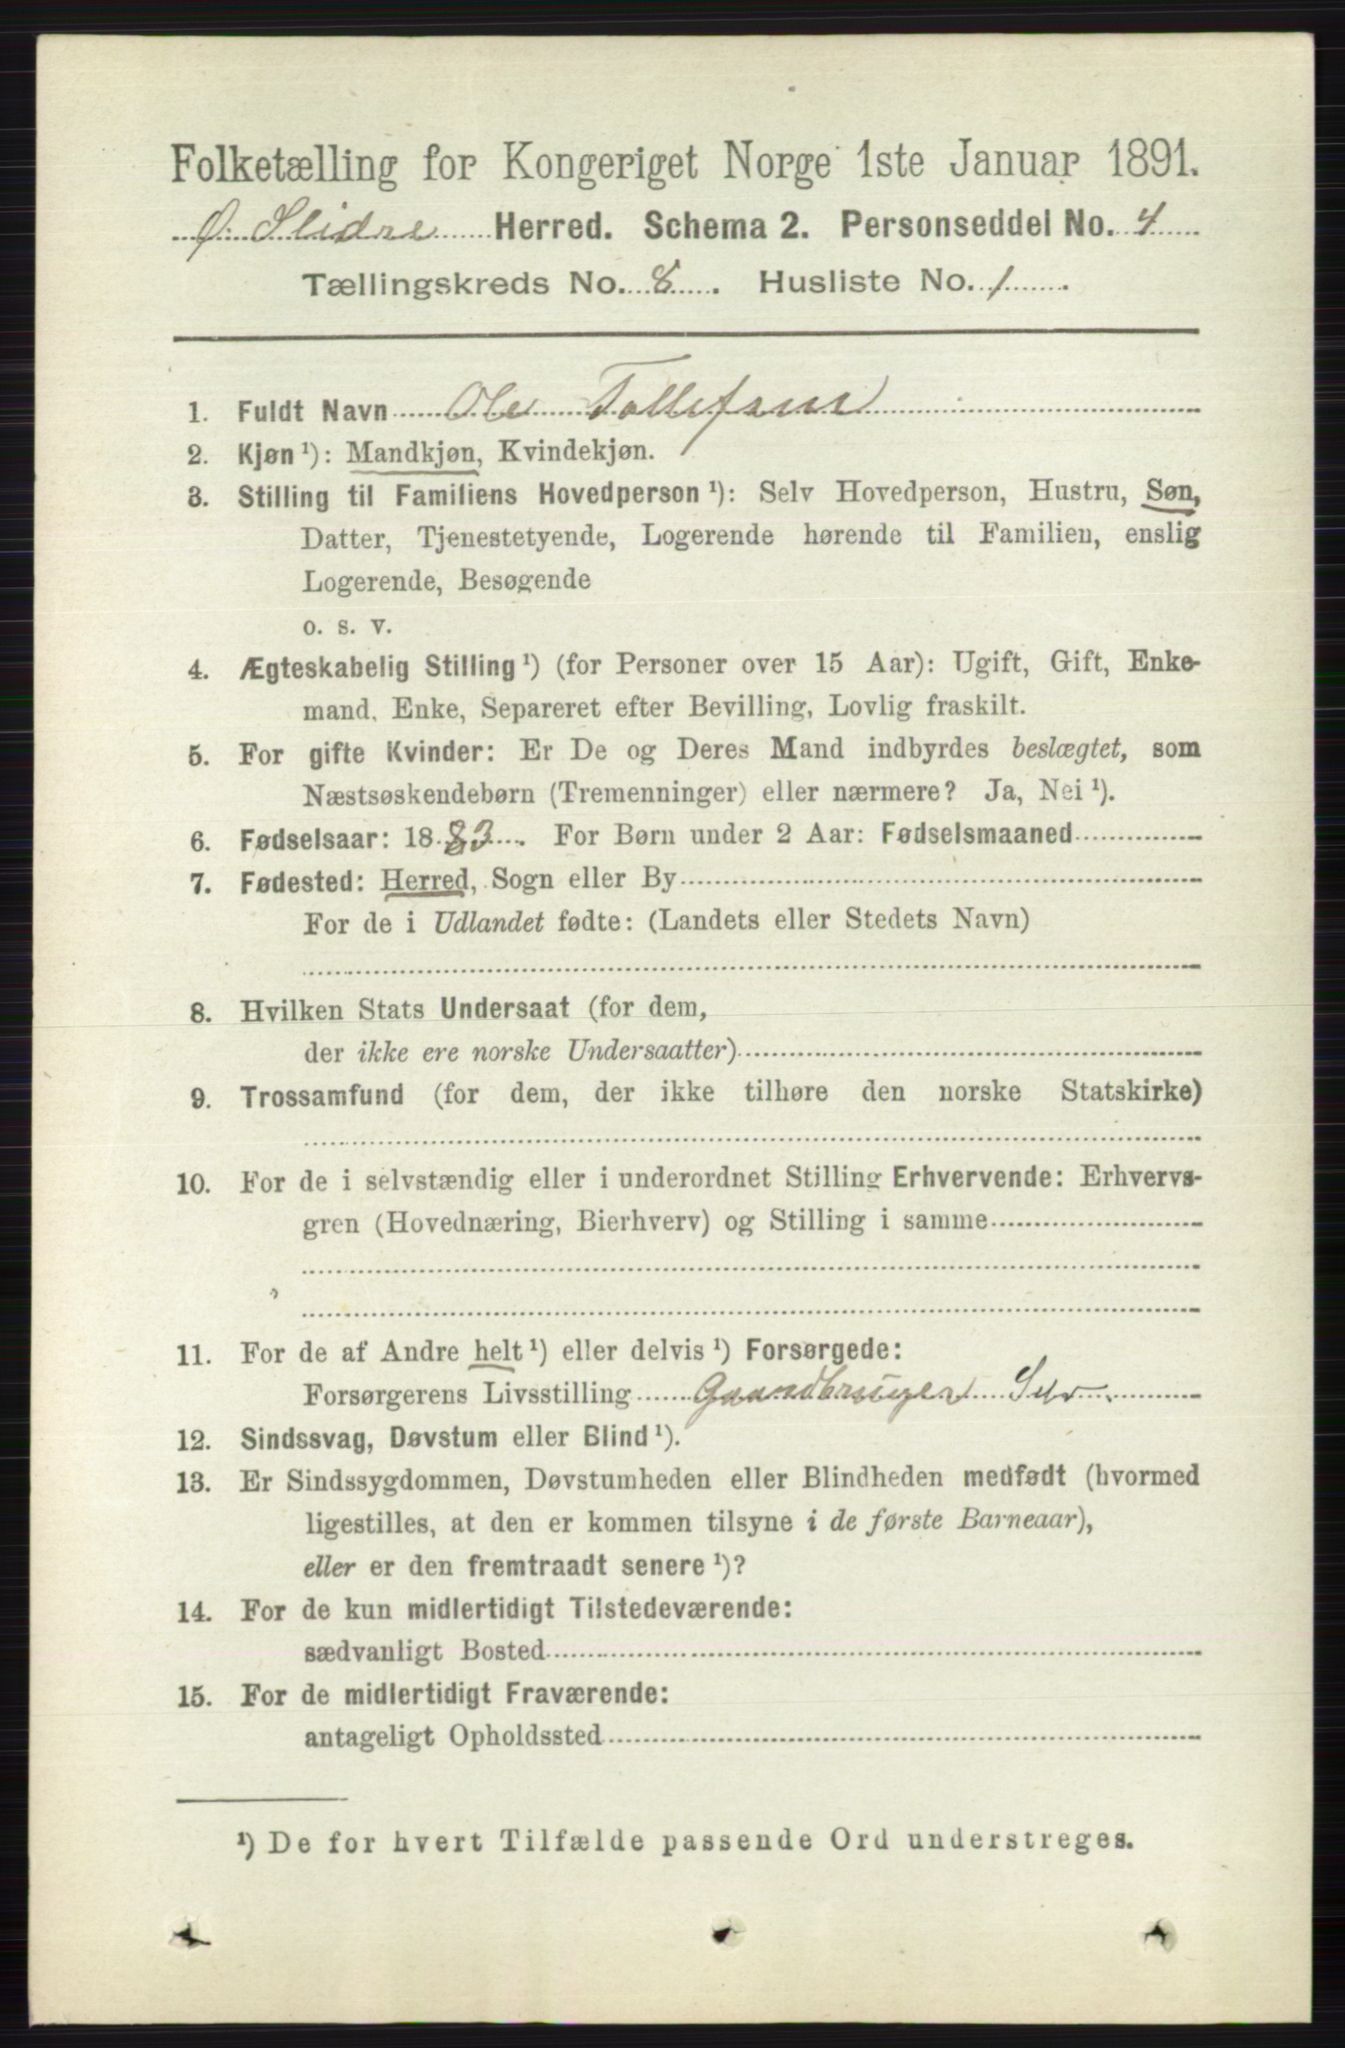 Folketælling for Kongeriget Norge 1ste Januar 1891.
Ø. Slidre Herred. Schema 2. Personseddel No. 4
Tællingskreds No. 8. Husliste No. 1.
1. Fuldt Navn Ole Tollefsen
2. Kjøn ¹): Mandkjøn, Kvindekjøn.
3. Stilling til Familiens Hovedperson ¹): Selv Hovedperson, Hustru, Søn,
Datter, Tjenestetyende, Logerende hørende til Familien, enslig
Logerende, Besøgende
o. s. v.
4. Ægteskabelig Stilling ¹) (for Personer over 15 Aar): Ugift, Gift, Enke-
mand, Enke, Separeret efter Bevilling, Lovlig fraskilt.
5. For gifte Kvinder: Er De og Deres Mand indbyrdes beslægtet, som
Næstsøskendebørn (Tremenninger) eller nærmere? Ja, Nei ¹).
6. Fødselsaar: 1883. For Børn under 2 Aar: Fødselsmaaned
7. Fødested: Herred, Sogn eller By
For de i Udlandet fødte: (Landets eller Stedets Navn)
8. Hvilken Stats Undersaat (for dem,
der ikke ere norske Undersaatter)
9. Trossamfund (for dem, der ikke tilhøre den norske Statskirke)
10. For de i selvstændig eller i underordnet Stilling Erhvervende: Erhvervs-
gren (Hovednæring, Bierhverv) og Stilling i samme
11. For de af Andre helt ¹) eller delvis ¹) Forsørgede:
Forsørgerens Livsstilling Gaardbruger Selv.
12. Sindssvag, Døvstum eller Blind ¹).
13. Er Sindssygdommen, Døvstumheden eller Blindheden medfødt (hvormed
ligestilles, at den er kommen tilsyne i de første Barneaar),
eller er den fremtraadt senere ¹)?
14. For de kun midlertidigt Tilstedeværende:
sædvanligt Bosted
15. For de midlertidigt Fraværende:
antageligt Opholdssted
¹) De for hvert Tilfælde passende Ord understreges.